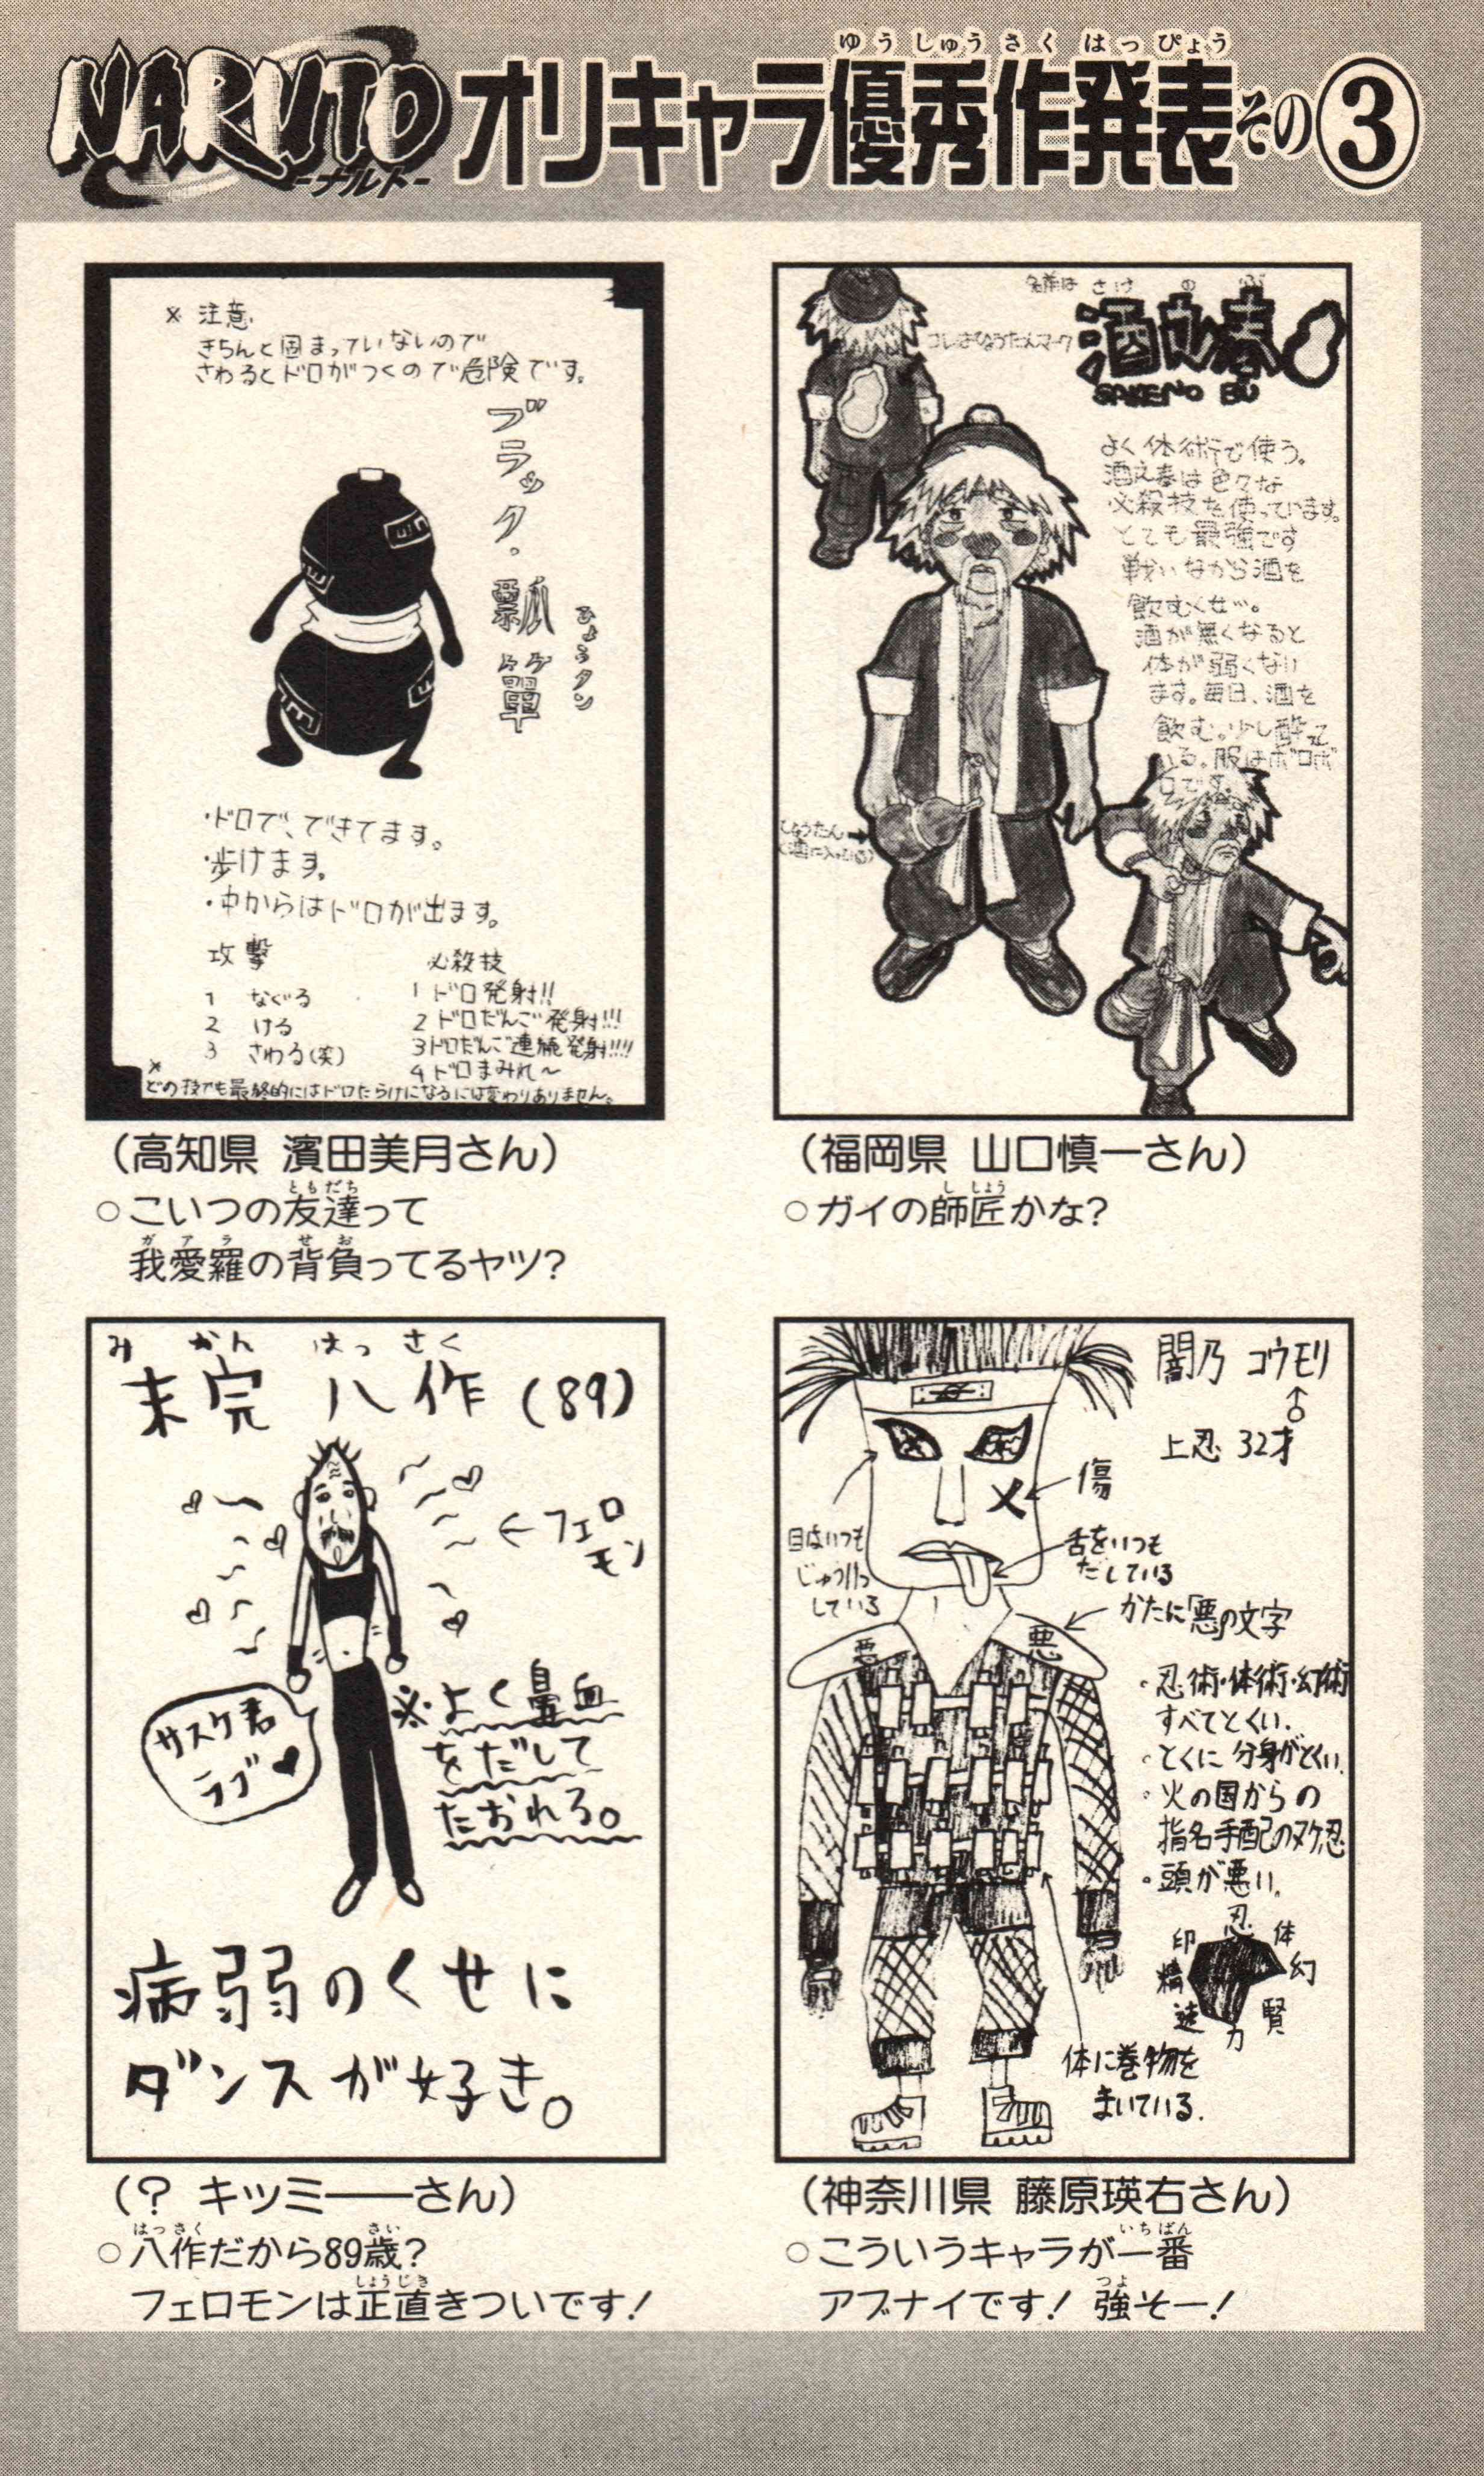 NARUTO
-ナルト-
オリキャラ優秀作発表その③
ゆうしゅうさくはっぴょう
※ 注意
きちんと固まっていないので
さわるとドロがつくので危険です。
ブラック・瓢箪
ひょうタン
・ドロで、できてます。
・歩けます。
・中からはドロが出ます。
攻撃
1 なぐる
2 ける
3 さわる(笑)
必殺技
1 ドロ発射!!
2 ドロだんご発射!!!
3 ドロだんご連続発射!!!!
4 ドロまみれ〜
※
どの技でも最終的にはドロだらけになるには変わりありません。
(高知県 濱田美月さん)
○こいつの友達って
ともだち
我愛羅の背負ってるヤツ?
ガアラ せお
名前は さけ の ぶ
酒乃春
SAKENO BU
コレはひょうたんマーク
よく体術で使う。
酒乃春は色々な
必殺技を使っています。
とても最強です
戦いながら酒を
飲むくせ…。
酒が無くなると
体が弱くない
ます。毎日、酒を
飲む。少し酔って
いる。服はボロボ
ロです。
ひょうたん
(酒に入っている)
(福岡県 山口慎一さん)
○ガイの師匠かな?
ししょう
み かん はっ さく
未完 八作 (89)
←フェロ
モン
サスケ君
ラブ♥
※よく鼻血
をだして
たおれる。
病弱のくせに
ダンスが好き。
(? キッミ――さん)
○八作だから89歳?
はっさく さい
フェロモンは正直きついです!
しょうじき
闇乃 コウモリ
♂
上忍 32才
傷
目はいつも
じゅう血
している
舌をいつも
だしている
かたに「悪」の文字
悪
悪
・忍術・体術・幻術
すべてとくい.
・とくに 分身がとくい.
・火の国からの
指名手配のヌケ忍
・頭が悪い.
忍
体
幻
賢
力
速
精
印
体に巻物を
まいている.
(神奈川県 藤原瑛右さん)
○こういうキャラが一番
いちばん
アブナイです! 強そー!
つよ